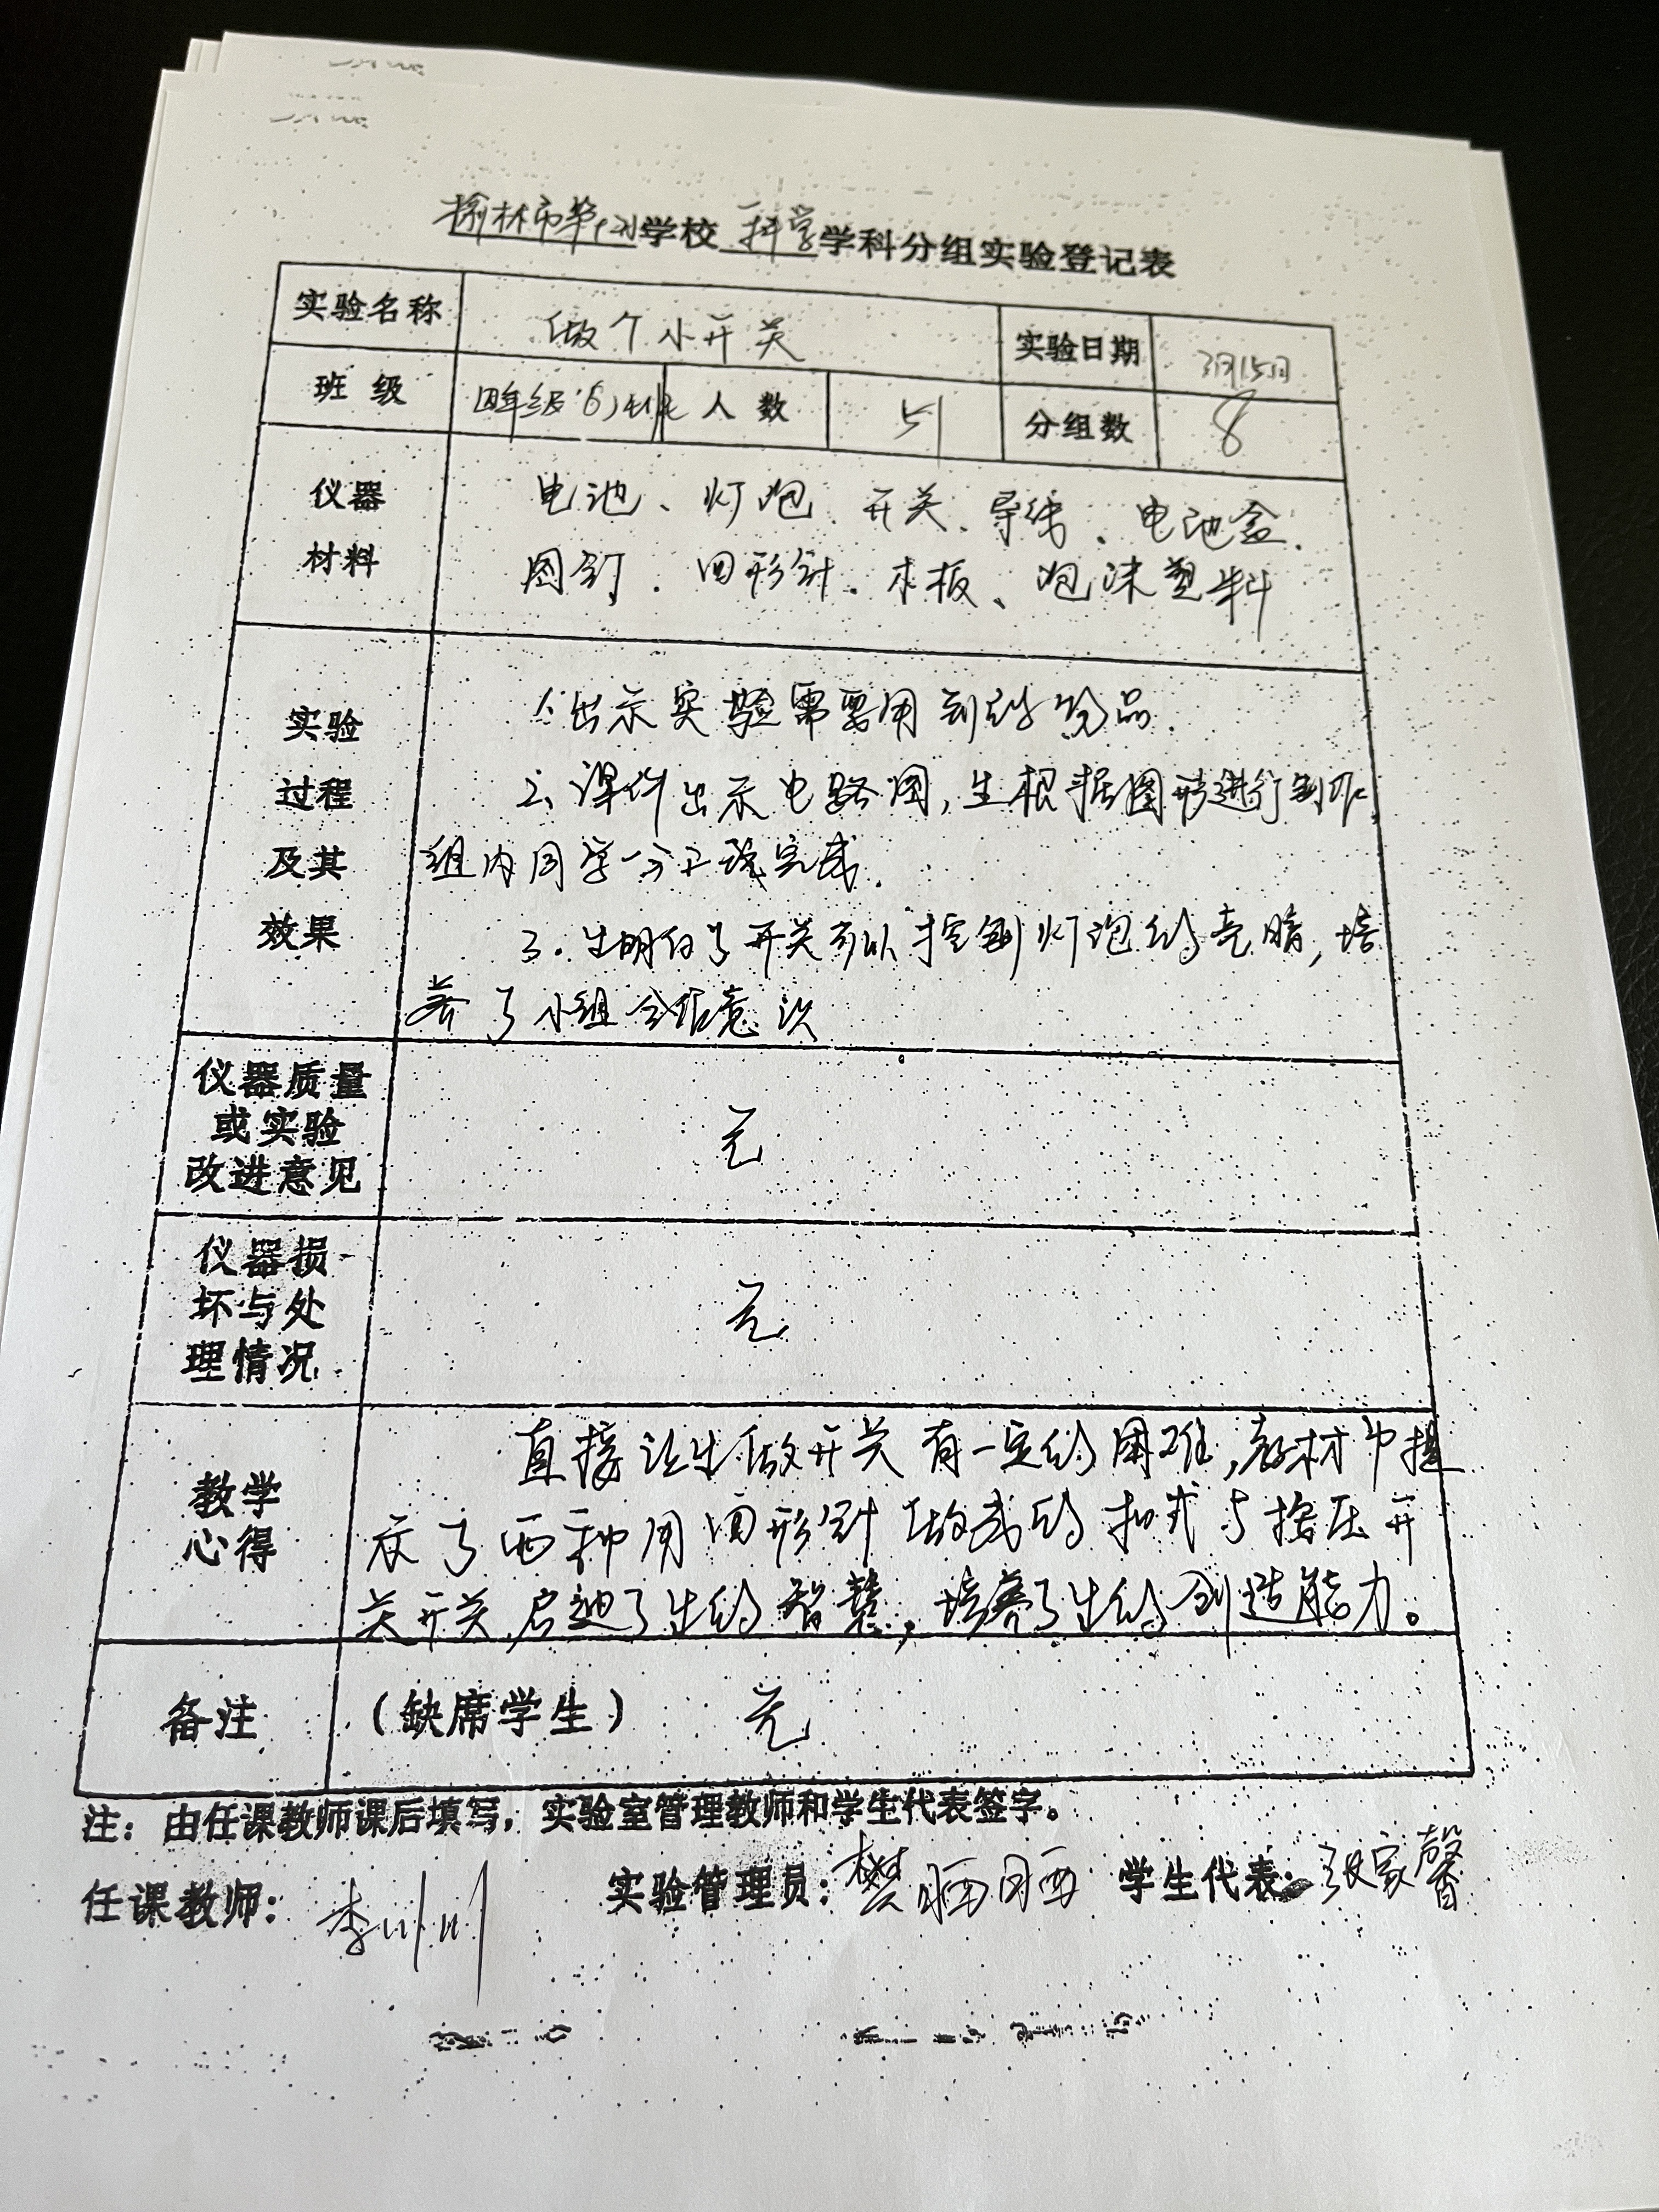 榆林市第 学校 科学 学科分组实验登记表
实验名称 做个小开关 实验日期 3月15日
班级 四年级(6)班 人数 51 分组数 8
仪器
材料
电池、灯泡、开关、导线、电池盒、
图钉、回形针、木板、泡沫塑料
实验
过程
及其
效果
1、出示实验需要用到的物品.
2、课件出示电路图,生根据图形进行制作,
组内同学分工 完成.
3.生明白了开关可以控制灯泡的亮暗,培
养了小组合作意识
仪器质量
或实验
改进意见
无
仪器损
坏与处
理情况
无
教学
心得
直接让生做开关有一定的困难,教材中提
示了两种用回形针做成的 式与按压开
关开关,启迪了生的智慧,培养了生的创造能力。
备注 (缺席学生) 无
注:由任课教师课后填写,实验室管理教师和学生代表签字。
任课教师: 李 实验管理员: 樊丽丽 学生代表: 张家馨